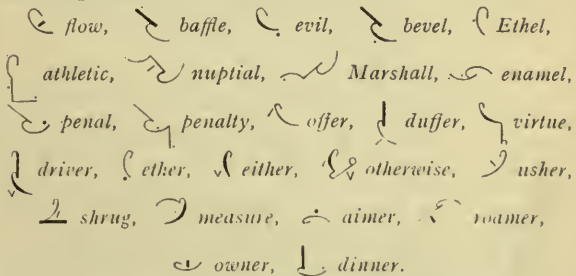 flow, baffle, evil, bevel, Ethel,
athletic, nuptial, Marshall, enamel,
penal, penalty, offer, duffer, virtue,
driver, ether, either, otherwise, usher,
shrug, measure, aimer, roamer,
owner, dinner.